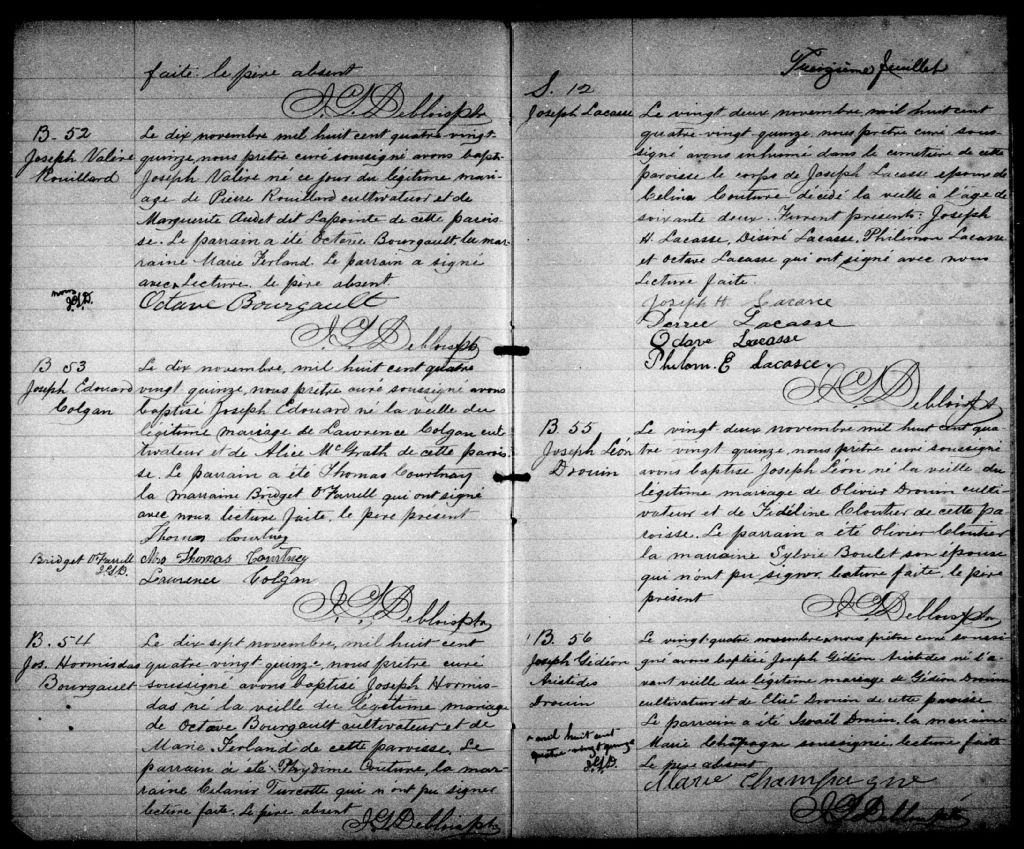 faite. le père absent
J. G. Deblois ptr
B. 52
Joseph Valére
Rouillard
Le dix novembre mil huit cent quatre vingt
quinze, nous pretre curé soussigné avons bapti-
Joseph Valére né ce jour du légitime mari-
age de Pierre Rouillard cultivateur et de
Marguerite Audet dit Lapointe de cette parois
se. Le parrain a été Octave Bourgault, la mar-
raine Marie Ferland. Le parrain a signé
avec lecture. le père absent
nous
Octave Bourgault
Deblois ptr
B 53
Joseph Edouard
Colgan
Le dix novembre, mil huit cent quatre
vingt quinze, nous prêtre curé soussigné avons
baptise Joseph Edouard né la veille du
légitime mariage de Lawrence Colgan cul
tivateur et de Alice McGrath de cette parois-
se. Le parrain a été Thomas Courtnay
la marraine Bridget O'Farrell qui ont signé
avec nous, lecture faite. le pere présent
Thomas Courtney
Bridget O'Farrell
Thomas Courtney
Lawrence Colgan
Deblois ptr
B. 54
Jos. Hormisdas
Bourgault
Le dix-sept novembre, mil huit cent
quatre vingt quinze, nous pretre curé
soussigné avons baptisé Joseph Hormis-
das né la veille du légitime mariage
de Octave Bourgault cultivateur et de
Marie Ferland de cette paroisse. Le
parrain a été Couture, la mar-
raine Turcotte qui n'ont pu signer
lecture faite. Le père absent
Deblois ptr
feuillet
S. 12
Joseph Lacasse
Le vingt deux novembre, mil huit cent
quatre-vingt quinze, nous prêtre curé sous-
signé avons inhumé dans le cimetiere de cette
paroisse le corps de Joseph Lacasse epoux de
Celina Couture décédé la veille à l'age de
soixante deux. Furent presents: Joseph
H. Lacasse, Désiré Lacasse, Philémon Lacasse
et Octave Lacasse qui ont signé avec nous
Lecture faite.
Joseph H Lacasse
Lacasse
Octave Lacasse
Philem. E Lacasce.
Deblois ptr
B. 55
Joseph Léon
Drouin
Le vingt-deux novembre mil huit cent qua
tre vingt quinze, nous prêtre curé soussigné
avons baptise Joseph Léon né la veille du
légitime mariage de Olivier Drouin culti-
vateur et de Fidéline Cloutier de cette pa
roisse. Le parrain a été Olivier Cloutier
la marraine Sylvie Boulet son epouse
qui n'ont pu signer, lecture faite. le père
présent
Deblois ptr
B. 56
Joseph Gédéon
Aristides
Drouin
Le vingt-quatre novembre, nous prêtre curé soussi-
gné avons baptisé Joseph Gédéon Aristides né l'a-
vant veille du légitime mariage de Gédéon Drouin
cultivateur et de Elisé Drouin de cette paroisse
Le parrain a été Drouin, la marraine
Marie soussignée, lecture faite
Le père absent
mil huit cent
quatre vingt quinze
Marie Champagne
Deblois ptr